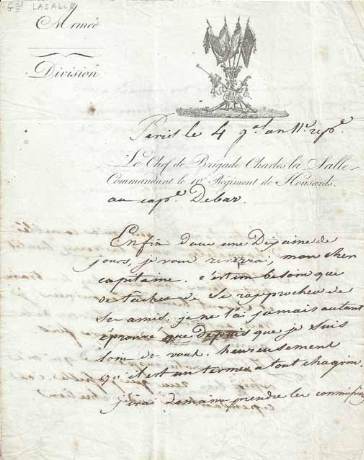 Gal LASALLE
Armée
Division
Paris le 4 g.al an 11e rép.e
Le Chef de Brigade Charles la Salle
Commandant le 10e Régiment de Housards.
au capne Debar
Enfin dans une Dizaine de
jours, je vous reverrai, mon cher
capitaine. c'est un besoin que
de tacher de se rapprocher de
ses amis. je ne l'ai jamais autant
éprouvé que depuis que je suis
loin de vous. heureusement
qu'il est un terme a tout chagrin,
j'irai demain prendre les